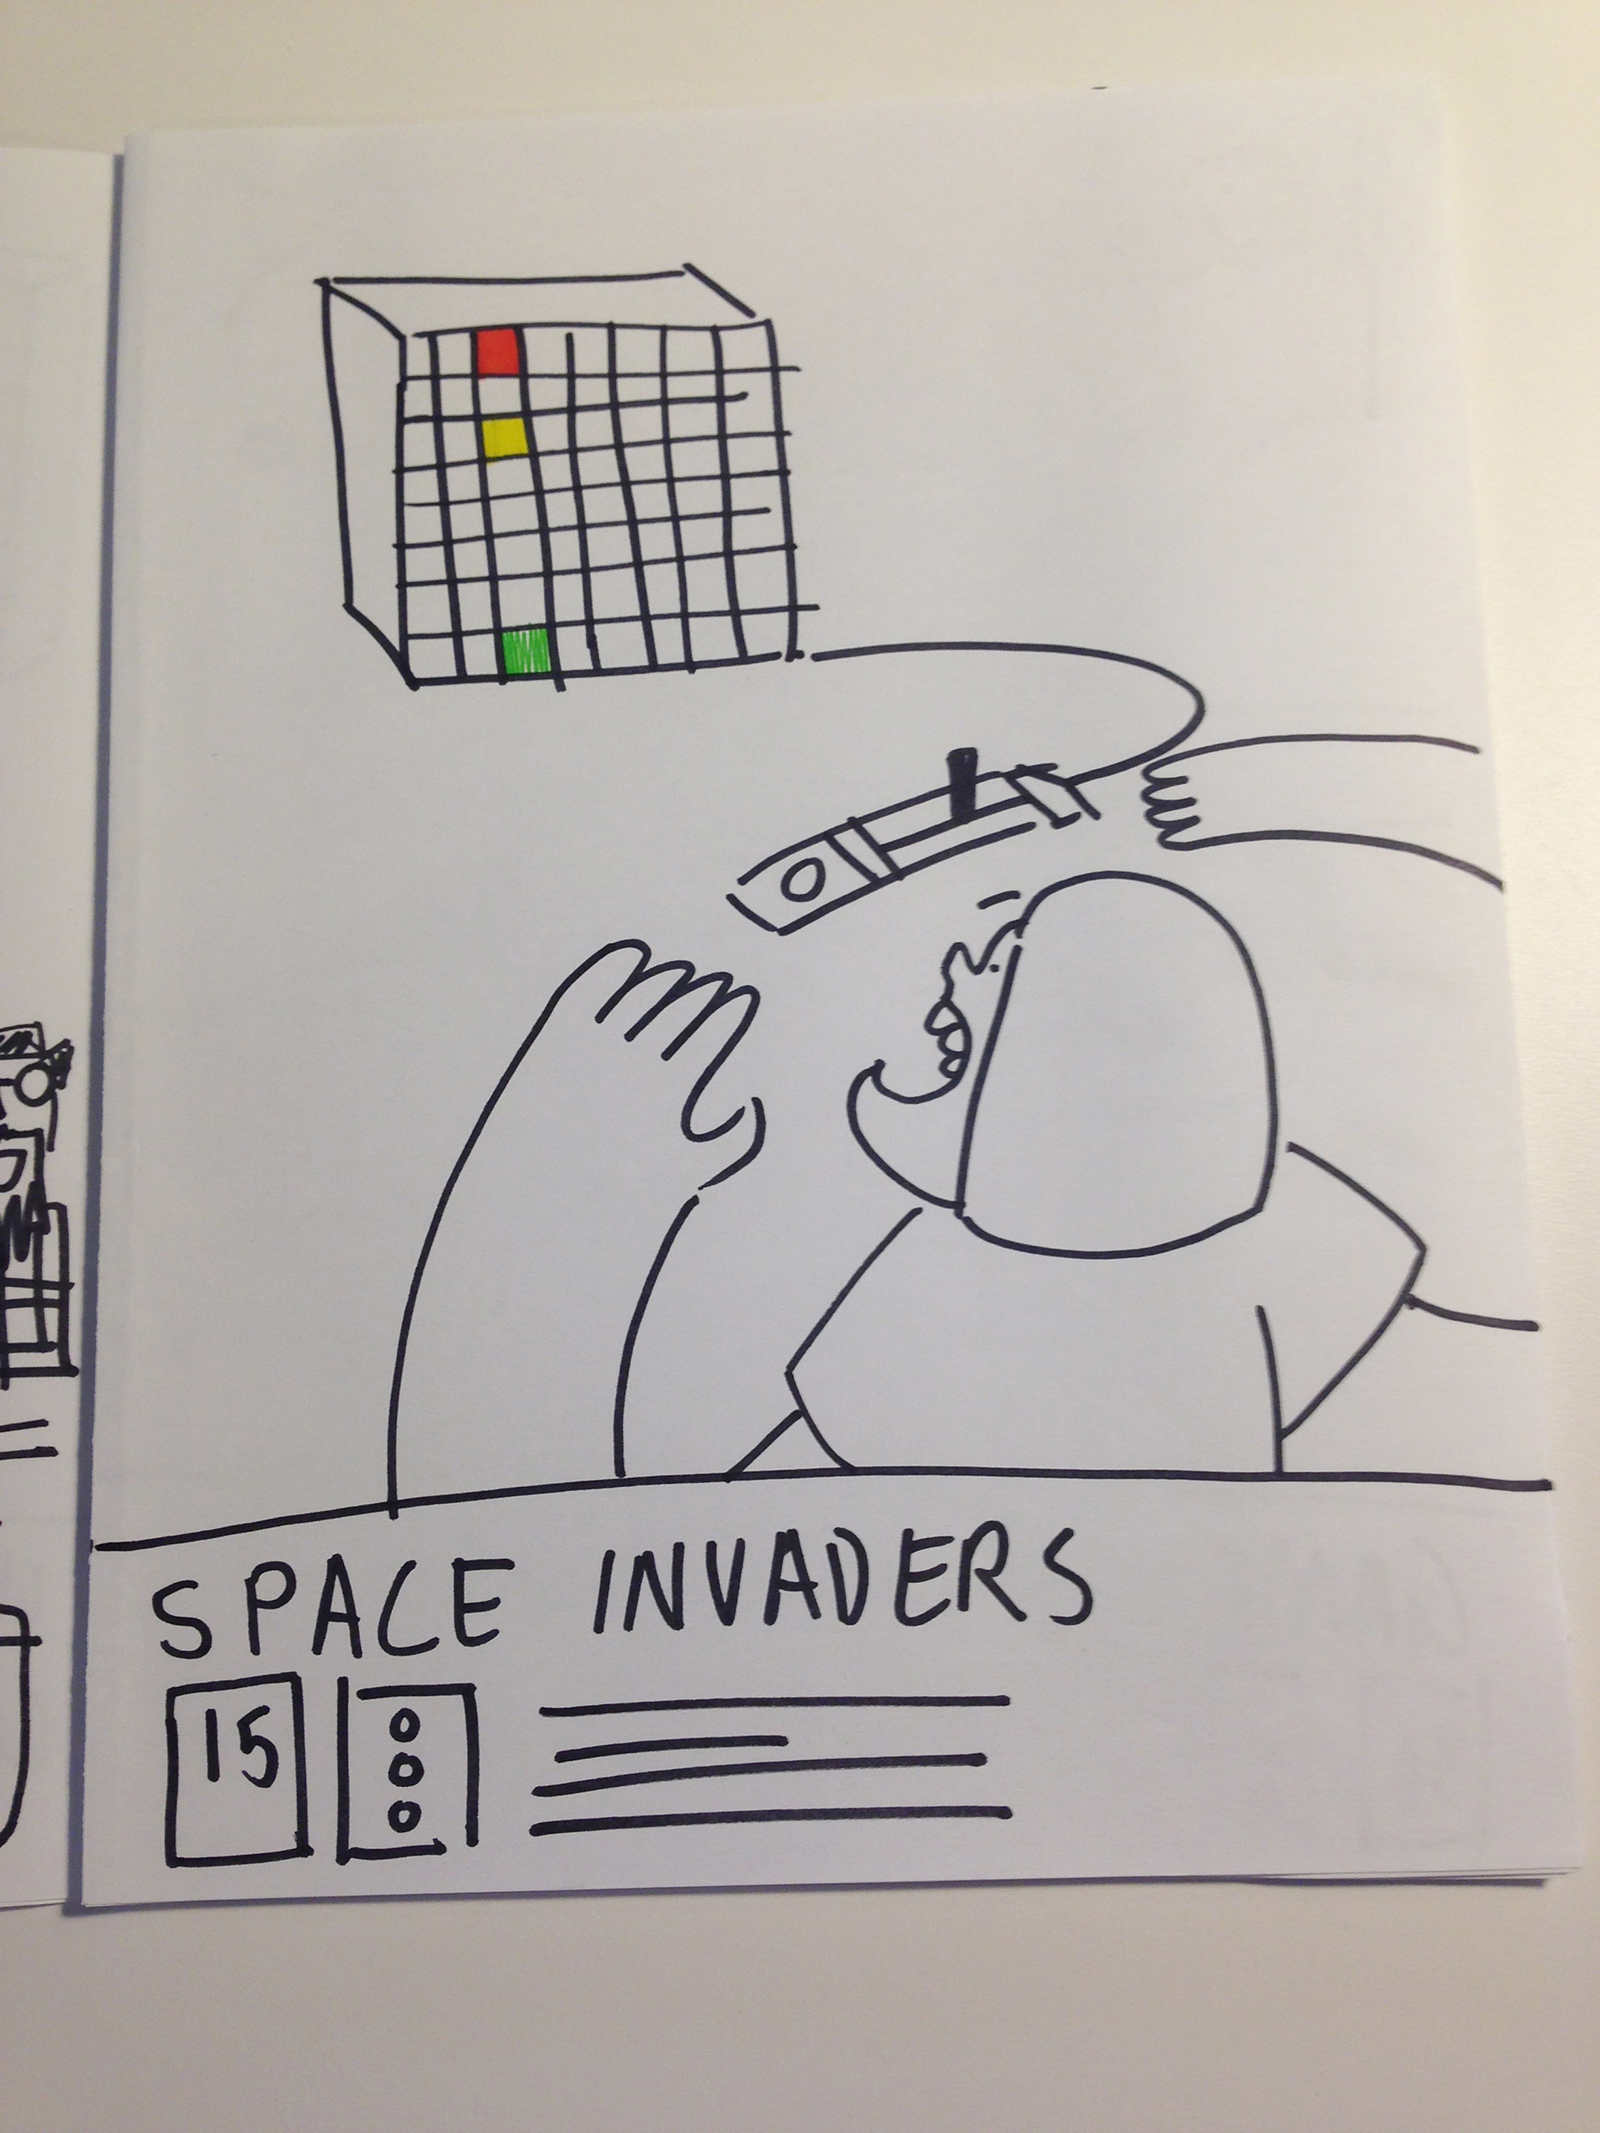 SPACE INVADERS
15